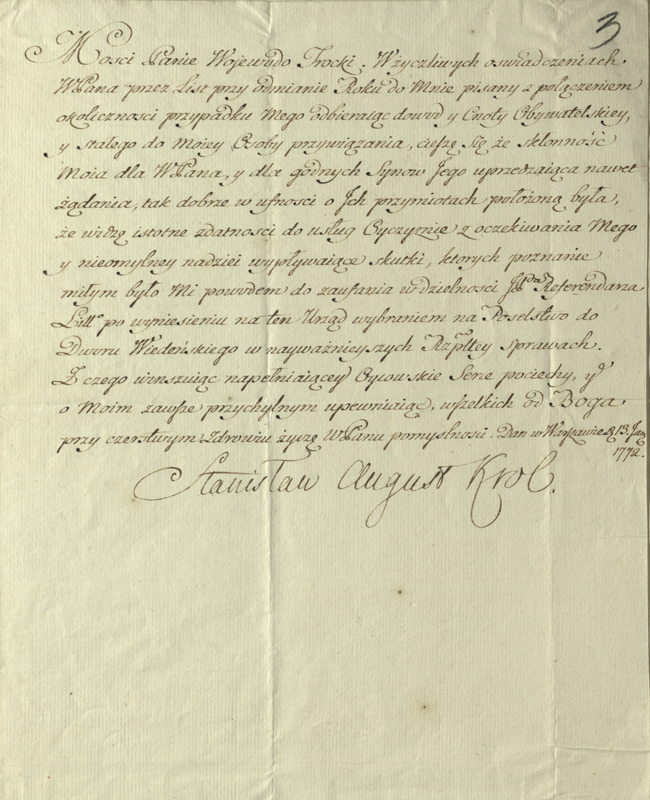 3
Mości Panie Woiewodo Trocki. W życzliwych oswiadczeniach
WPana przez List przy odmianie Roku do Mnie pisany z połączeniem
okoliczności przypadku Mego odbieraiąc dowod y Cnoty Obywatelskiey,
y stałego do Moiey Osoby przywiązania, cieszę się że skłonność
Moia dla WPana, y dla godnych Synow Jego uprzedzaiąca nawet
żądania, tak dobrze w ufności o Jch przymiotach położoną była,
że widzę istotne zdatności do usług Oyczyznie z oczekiwania Mego
y nieomylney nadziei wypływaiące skutki, ktorych poznanie
miłym było Mi powodem do zaufania w dzielności Referendarza
Litt° po wyniesieniu na ten Urząd wybraniem na Poselstwo do
Dworu Wiedeńskiego w nayważnieyszych Rzpltey sprawach.
Z czego winszuiąc napełniaiącey Oycowskie Serce pociechy, y
o Moim zawsze przychylnym upewniaiąc, wszelkich od Boga
przy czerstwym Zdrowiu życzę WPanu pomyslnosci. Dan w Warszawie D. 13. Jan
1772.
Stanisław August Krol.